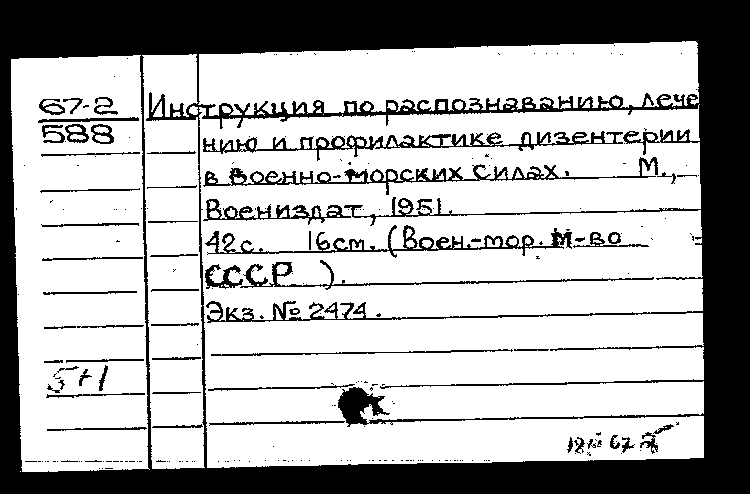 67-2
588
Инструкция по распознаванию, лече
нию и профилактике дизентерии
в военно-морских силах. М.,
Воениздат, 1951.
42с. 16см. (Воен.-мор. м-во
СССР ).
Экз. № 2474.
5+1